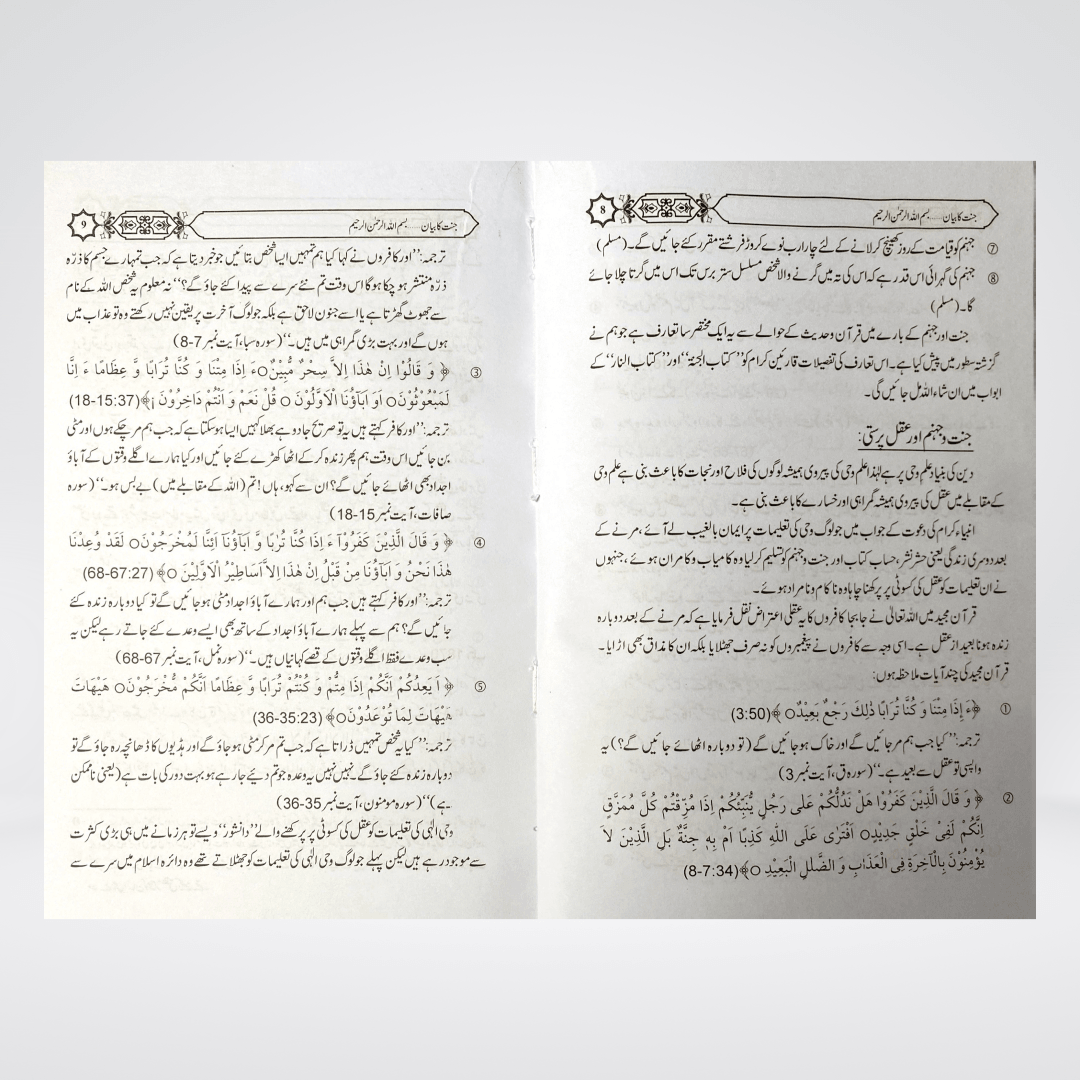 جنت کا بیان......بسم اللہ الرحمٰن الرحیم
8
⑦ جہنم کو قیامت کے روز کھینچ کر لانے کے لئے چار ارب نوے کروڑ فرشتے مقرر کئے جائیں گے۔ (مسلم)
⑧ جہنم کی گہرائی اس قدر ہے کہ اس کی تہ میں گرنے والا شخص مسلسل ستر برس تک اس میں گرتا چلا جائے
گا۔ (مسلم)
جنت اور جہنم کے بارے میں قرآن و حدیث کے حوالے سے یہ ایک مختصر سا تعارف ہے جو ہم نے
گزشتہ سطور میں پیش کیا ہے۔ اس تعارف کی تفصیلات قارئین کرام کو ’’کتاب الجنۃ‘‘ اور ’’کتاب النار‘‘ کے
ابواب میں ان شاء اللہ مل جائیں گی۔
جنت و جہنم اور عقل پرستی:
دین کی بنیاد علم وحی پر ہے لہٰذا علم وحی کی پیروی ہمیشہ لوگوں کی فلاح اور نجات کا باعث بنی ہے علم وحی
کے مقابلے میں عقل کی پیروی ہمیشہ گمراہی اور خسارے کا باعث بنی ہے۔
انبیاء کرام کی دعوت کے جواب میں جو لوگ وحی کی تعلیمات پر ایمان بالغیب لے آئے، مرنے کے
بعد دوسری زندگی یعنی حشر نشر، حساب کتاب اور جنت و جہنم کو تسلیم کر لیا وہ کامیاب و کامران ہوئے، جنہوں
نے ان تعلیمات کو عقل کی کسوٹی پر پرکھنا چاہا وہ ناکام و نامراد ہوئے۔
قرآن مجید میں اللہ تعالیٰ نے جا بجا کافروں کا یہ عقلی اعتراض نقل فرمایا ہے کہ مرنے کے بعد دوبارہ
زندہ ہونا بعید از عقل ہے۔ اسی وجہ سے کافروں نے پیغمبروں کو نہ صرف جھٹلایا بلکہ ان کا مذاق بھی اڑایا۔
قرآن مجید کی چند آیات ملاحظہ ہوں:
① ﴿ءَ اِذَا مِتْنَا وَ كُنَّا تُرَابًا ذٰلِكَ رَجْعٌ بَعِيْدٌ○﴾ (3:50)
ترجمہ: ’’کیا جب ہم مر جائیں گے اور خاک ہو جائیں گے (تو دوبارہ اٹھائے جائیں گے؟) یہ
واپسی تو عقل سے بعید ہے۔‘‘ (سورہ ق، آیت نمبر 3)
② ﴿ وَ قَالَ الَّذِيْنَ كَفَرُوْا هَلْ نَدُلُّكُمْ عَلٰى رَجُلٍ يُّنَبِّئُكُمْ اِذَا مُزِّقْتُمْ كُلَّ مُمَزَّقٍ
اِنَّكُمْ لَفِىْ خَلْقٍ جَدِيْدٍ○ اَفْتَرٰى عَلَى اللّٰهِ كَذِبًا اَمْ بِهٖ جِنَّةٌ بَلِ الَّذِيْنَ لاَ
يُؤْمِنُوْنَ بِالْاٰخِرَةِ فِى الْعَذَابِ وَ الضَّلٰلِ الْبَعِيْدِ ○﴾(8-7:34)
جنت کا بیان......بسم اللہ الرحمٰن الرحیم
9
ترجمہ: ’’اور کافروں نے کہا کیا ہم تمہیں ایسا شخص بتائیں جو خبر دیتا ہے کہ جب تمہارے جسم کا ذرّہ
ذرّہ منتشر ہو چکا ہوگا اس وقت تم نئے سرے سے پیدا کئے جاؤ گے؟‘‘ نہ معلوم یہ شخص اللہ کے نام
سے جھوٹ گھڑتا ہے یا اسے جنون لاحق ہے بلکہ جو لوگ آخرت پر یقین نہیں رکھتے وہ تو عذاب میں
ہوں گے اور بہت بڑی گمراہی میں ہیں۔‘‘ (سورہ سبا، آیت نمبر 7-8)
③ ﴿ وَ قَالُوْا اِنْ هٰذَا اِلاَّ سِحْرٌ مُّبِيْنٌ○ءَ اِذَا مِتْنَا وَ كُنَّا تُرَابًا وَّ عِظَامًا ءَ اِنَّا
لَمَبْعُوْثُوْنَ○ اَوَ اٰبَاؤُنَا الْاَوَّلُوْنَ ○ قُلْ نَعَمْ وَ اَنْتُمْ دَاخِرُوْنَ ﴾(18-15:37)
ترجمہ: ’’اور کافر کہتے ہیں یہ تو صریح جادو ہے بھلا کہیں ایسا ہو سکتا ہے کہ جب ہم مر چکے ہوں اور مٹی
بن جائیں اس وقت ہم پھر زندہ کر کے اٹھا کھڑے کئے جائیں اور کیا ہمارے اگلے وقتوں کے آباؤ
اجداد بھی اٹھائے جائیں گے؟ ان سے کہو، ہاں! تم (اللہ کے مقابلے میں) بے بس ہو۔‘‘ (سورہ
صافات، آیت نمبر 15-18)
④ ﴿ وَ قَالَ الَّذِيْنَ كَفَرُوْآ ءَ اِذَا كُنَّا تُرٰبًا وَّ اٰبَاؤُنَآ اَئِنَّا لَمُخْرَجُوْنَ○ لَقَدْ وُعِدْنَا
هٰذَا نَحْنُ وَ اٰبَاؤُنَا مِنْ قَبْلُ اِنْ هٰذَا اِلاَّ اَسَاطِيْرُ الْاَوَّلِيْنَ ○﴾ (68-67:27)
ترجمہ: ’’اور کافر کہتے ہیں جب ہم اور ہمارے آباؤ اجداد مٹی ہو جائیں گے تو کیا دوبارہ زندہ کئے
جائیں گے؟ ہم سے پہلے ہمارے آباؤ اجداد کے ساتھ بھی ایسے وعدے کئے جاتے رہے لیکن یہ
سب وعدے فقط اگلے وقتوں کے قصے کہانیاں ہیں۔‘‘ (سورہ نمل، آیت نمبر 67-68)
⑤ ﴿ اَ يَعِدُكُمْ اَنَّكُمْ اِذَا مِتُّمْ وَ كُنْتُمْ تُرَابًا وَّ عِظَامًا اَنَّكُمْ مُّخْرَجُوْنَ○ هَيْهَاتَ
هَيْهَاتَ لِمَا تُوْعَدُوْنَ○﴾ (36-35:23)
ترجمہ: ’’کیا یہ شخص تمہیں ڈراتا ہے کہ جب تم مر کر مٹی ہو جاؤ گے اور ہڈیوں کا ڈھانچہ رہ جاؤ گے تو
دوبارہ زندہ کئے جاؤ گے۔ نہیں نہیں یہ وعدہ جو تم دیئے جا رہے ہو بہت دور کی بات ہے (یعنی ناممکن
ہے)‘‘ (سورہ مومنون، آیت نمبر 35-36)
وحی الٰہی کی تعلیمات کو عقل کی کسوٹی پر پرکھنے والے ’’دانشور‘‘ ویسے تو ہر زمانے میں ہی بڑی کثرت
سے موجود رہے ہیں لیکن پہلے جو لوگ وحی الٰہی کی تعلیمات کو جھٹلاتے تھے وہ دائرہ اسلام میں سرے سے